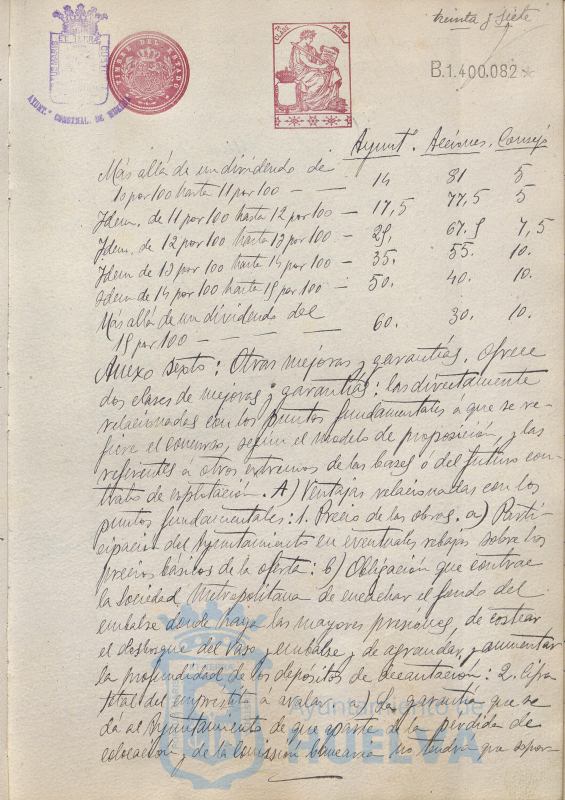 treinta y siete
B.1.400.082
TIMBRE DEL ESTADO
AYUNT.º CONSTNAL. DE HUELVA
Ayuntº. Acciones. Consejo
Más allá de un dividendo de
10 por 100 hasta 11 por 100 — — 14 81 5
Idem. de 11 por 100 hasta 12 por 100 — 17,5 77,5 5
Idem. de 12 por 100 hasta 13 por 100 — 25. 67.5 7,5
Idem de 13 por 100 hasta 14 por 100 — 35. 55. 10.
Idem de 14 por 100 hasta 15 por 100 — 50. 40. 10.
Más allá de un dividendo del
15 por 100 — — — — 60. 30. 10.
Anexo sexto: Otras mejoras y garantías. Ofrece
dos clases de mejoras y garantías: las directamente
relacionadas con los puntos fundamentales á que se re-
fiere el concurso, según el modelo de proposición, y las
referentes a otros extremos de las bases ó del futuro con-
trato de explotación. A) Ventajas relacionadas con los
puntos fundamentales: 1. Precio de las obras. a) Parti-
cipación del Ayuntamiento en eventuales rebajas sobre los
precios básicos de la oferta: b) Obligación que contrae
la Sociedad Metropolitana de encachar el fondo del
embalse donde haya las mayores presiones, de costear
el desbosque del vaso y embalse y de agrandar y aumentar
la profundidad de los depósitos de decantación: 2. Cifra
total del empréstito á avalar. a) La garantía que se
dá al Ayuntamiento de que aparte de la pérdida de
colocación y de la comisión bancaria no tendrá que sopor-
Ayuntamiento de
HUELVA